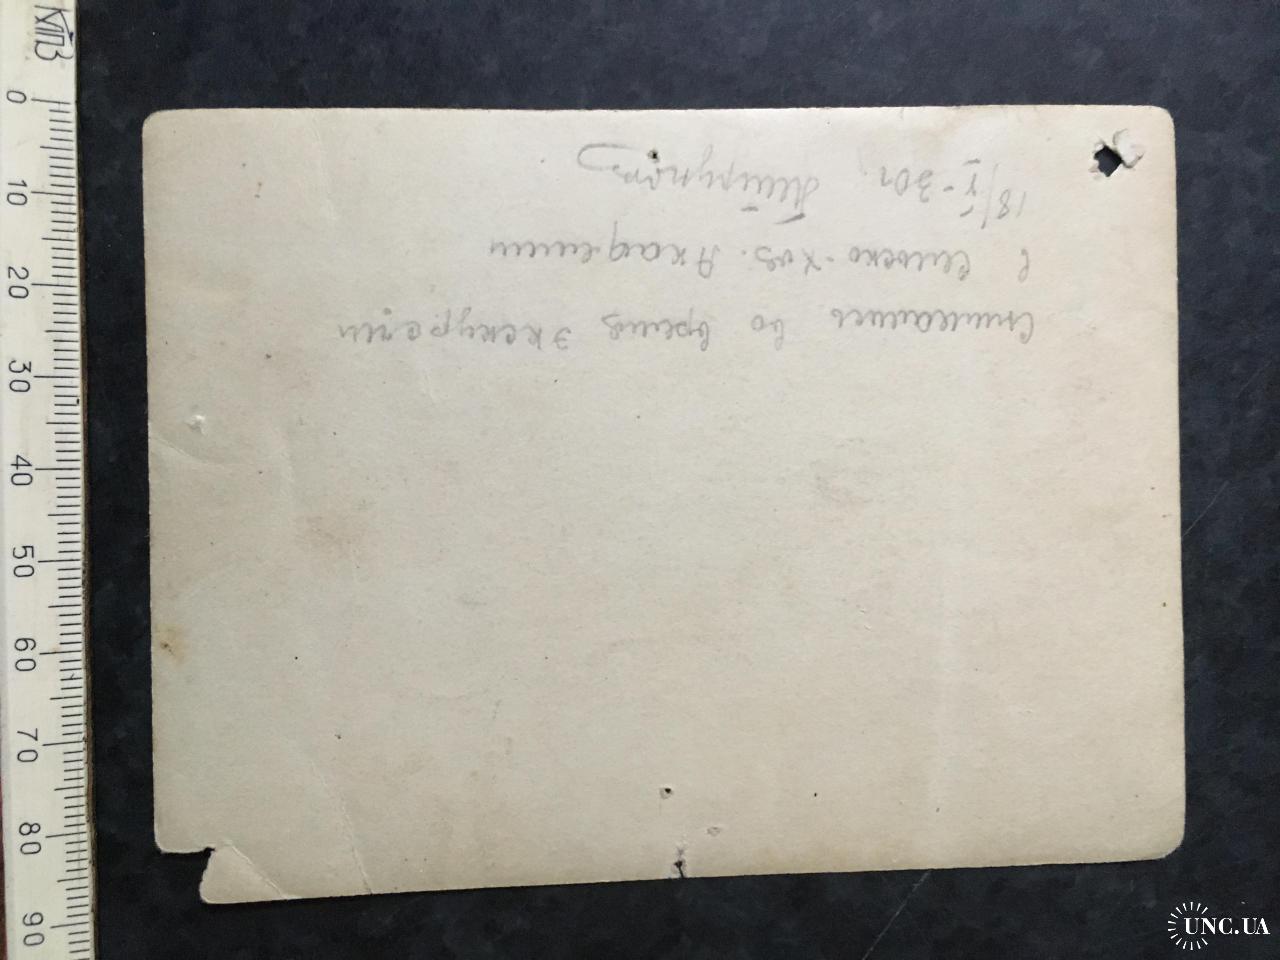 Снимались во время экскурсии
в Сельско-хоз. Академии
18/V-30г.
КПВ
0
10
20
30
40
50
60
70
80
90
UNC.UA